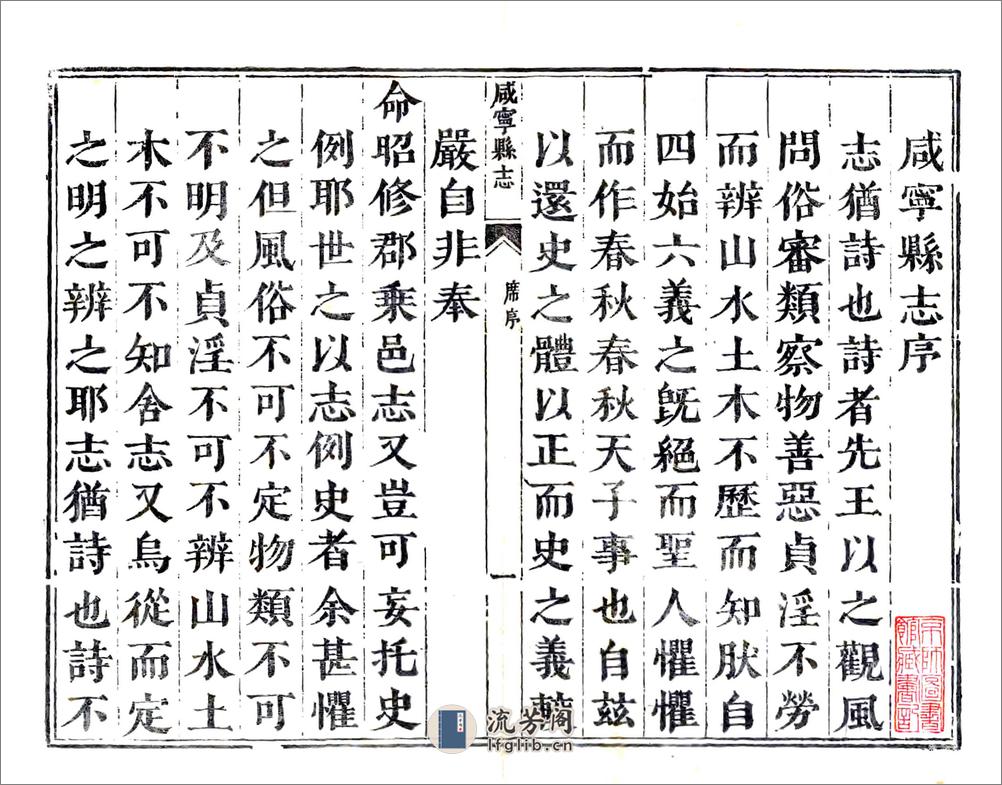 咸寧縣志序
志猶詩也詩者先王以之觀風
問俗審類察物善惡貞淫不勞
而辨山水土木不歷而知肰自
四始六義之旣絕而聖人懼懼
而作春秋春秋天子事也自茲
以還史之體以正而史之義
咸寧縣志
席序
一
嚴自非奉
命昭修郡乘邑志又豈可妄托史
例耶世之以志例史者余甚懼
之但風俗不可不定物類不可
不明及貞淫不可不辨山水土
木不可不知舍志又烏從而定
之明之辨之耶志猶詩也詩不
京師圖書
館藏書記
流芳阁
lfglib.cn